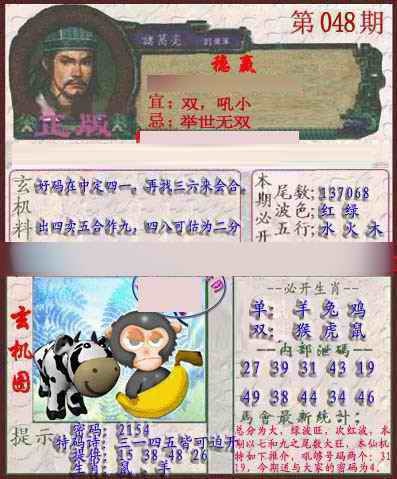 第048期
諸葛亮
稳赢
宜：双，吼小
忌：举世无双
正版
玄机料
好码在中定四一。再找三六来会合。
出四卖五合作九，四八可估为二分
本期必开
尾数:137068
波色:红 绿
五行:水 火 木
玄机图
--必开生肖--
单: 羊 兔 鸡
双: 猴 虎 鼠
--内部泄码--
27 39 31 43 19
49 38 44 34 46
馬會最新統計:
总分为大，绿波旺，次红波，本
期以七和九之尾数大旺，本仙机
特如下推介，吼够号码两个: 31
19，今期送与大家的密码为4.
提示
密码: 2154
特码诗: 三一四五皆可迫开
提供: 15 38 48 26
生肖: 鼠、羊